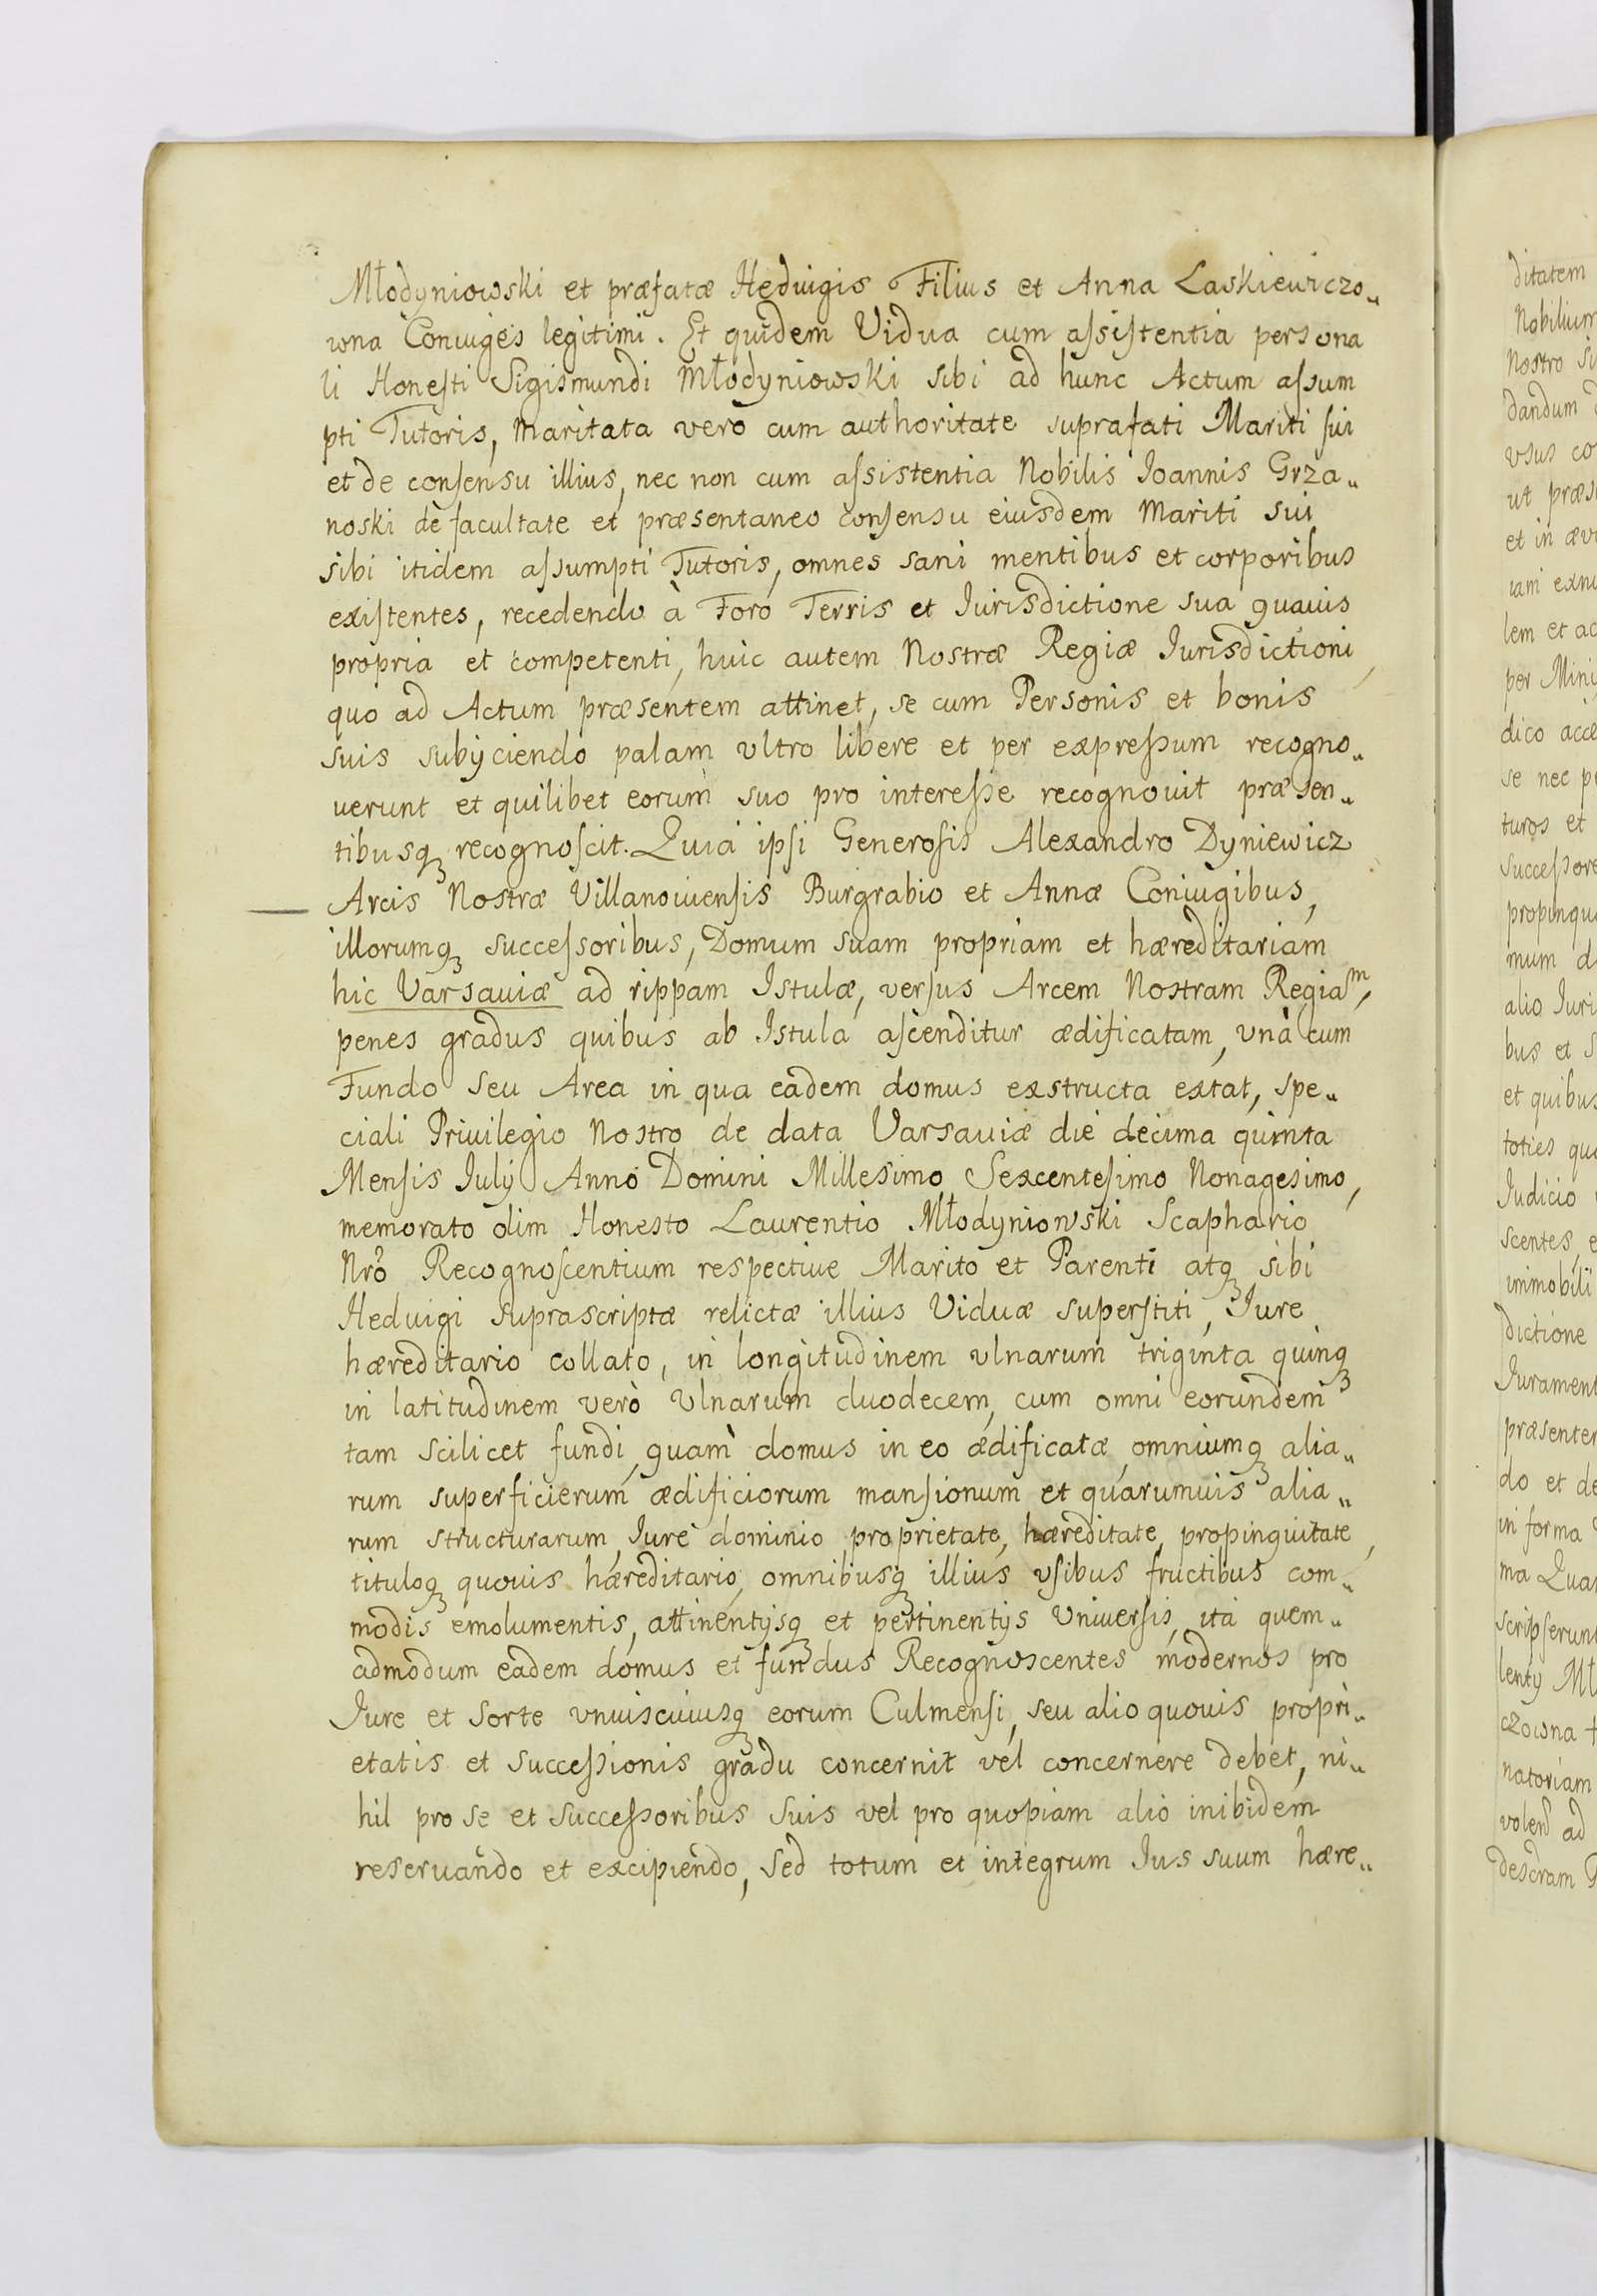 Młodyniowski et præfatæ Heduigis Filius et Anna Laskiewiczo„
wna Coniuges legitimi. Et quidem Vidua cum aſsiſtentia persona
li Honeſti Sigismundi Młodyniowski sibi ad hunc Actum aſsum
pti Tutoris, Maritata verò cum authoritate suprafati Mariti ſui
et de conſensu illius, nec non cum aſsistentia Nobilis Ioannis Grza„
noski de facultate et præsentaneo conſensu eiusdem Mariti sui
sibi itidem aſsumpti Tutoris, omnes sani mentibus et corporibus
exiſtentes, recedendo à Foro Terris et Iurisdictione sua quauis
propria et competenti, huic autem Nostræ Regiæ Iurisdictioni,
quo ad Actum præsentem attinet, se cum Personis et bonis
suis subÿciendo palam vltro libere et per expreſsum recogno„
uerunt et quilibet eorum suo pro intereſse recognouit præsen„
tibusqꝫ recognoſcit. Quia ipſi Generoſis Alexandro Dyniewicz
Arcis Nostræ Villanouienſis Burgrabio et Annæ Coniugibus,
illorumqꝫ succeſsoribus, Domum suam propriam et hæreditariam
hic Varsauiæ ad rippam Istulæ, verſus Arcem Nostram Regiaᵐ,
penes gradus quibus ab Istula aſcenditur ædificatam, vnà cum
Fundo seu Area in qua eadem domus exstructa extat, spe„
ciali Priuilegio Nostro de data Varsauiæ die decima quinta
Menſis Iulÿ Anno Domini Millesimo Sexcenteſimo Nonagesimo,
memorato olim Honesto Laurentio Młodyniowski Scaphario
Nrõ Recognoſcentium respectiue Marito et Parenti atqꝫ sibi
Heduigi suprascriptæ relictæ illius Viduæ superſtiti, Iure
hæreditario collato, in longitudinem vlnarum triginta quinqꝫ
in latitudinem verò Vlnarum duodecem, cum omni eorundem
tam scilicet fundi, quam domus in eo ædificatæ, omniumqꝫ alia„
rum superficierum ædificiorum manſionum et quarumuis alia„
rum structurarum, Iure dominio proprietate, hæreditate, propinquitate,
tituloqꝫ quouis hæreditario, omnibusqꝫ illius vſibus fructibus com„
modis emolumentis, attinentÿsqꝫ et pertinentÿs Vniuerſis, ita quem„
admodum eadem domus et fundus Recognoscentes modernos pro
Iure et Sorte vniuscuiusqꝫ eorum Culmenſi, seu alio quouis propri„
etatis et succeſsionis gradu concernit vel concernere debet, ni„
hil pro se et succeſsoribus suis vel pro quopiam alio inibidem
reseruando et excipiendo, sed totum et integrum Ius suum hære„
ditatem
Nobilium
Nostro
dandum
vsus
et in
lem et
per
dico
se nec
turos et
mum
alio
bus et
et quibus
toties
Iudicio
scentes,
immobili
dictione
do et
in forma
ma
lentÿ
czowna
natoriam
ad